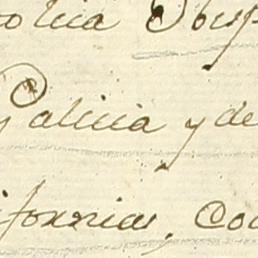 olica Obisp
Galicia y de
ifornias, Co